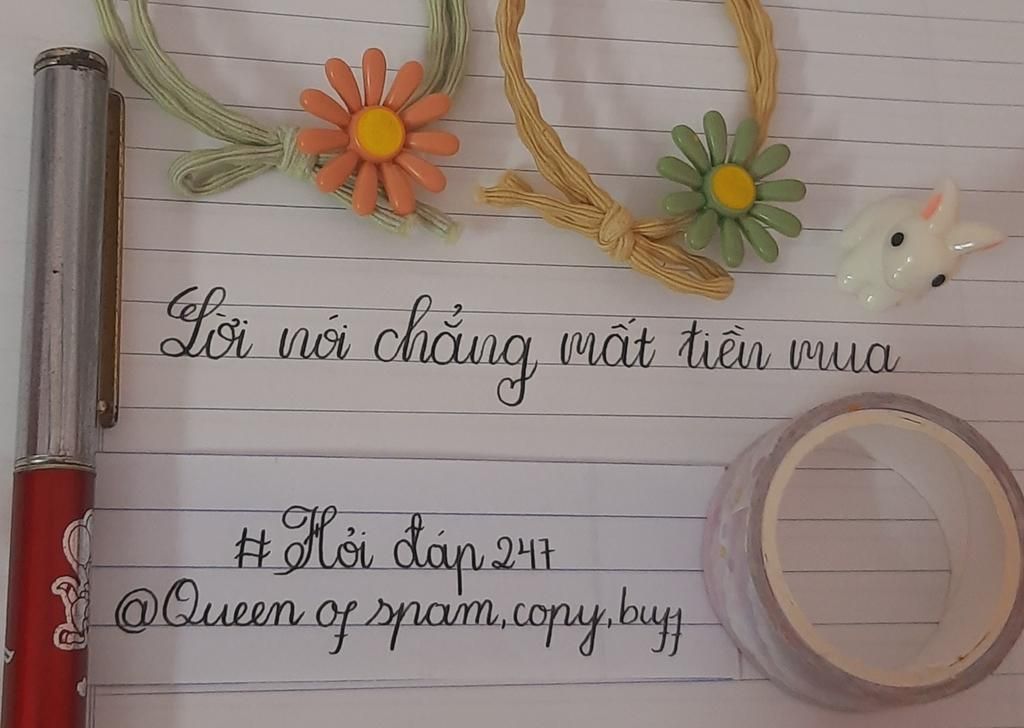 Lời nói chẳng mất tiền mua
#Hỏi đáp 247
@Queen of spam, copy, buff